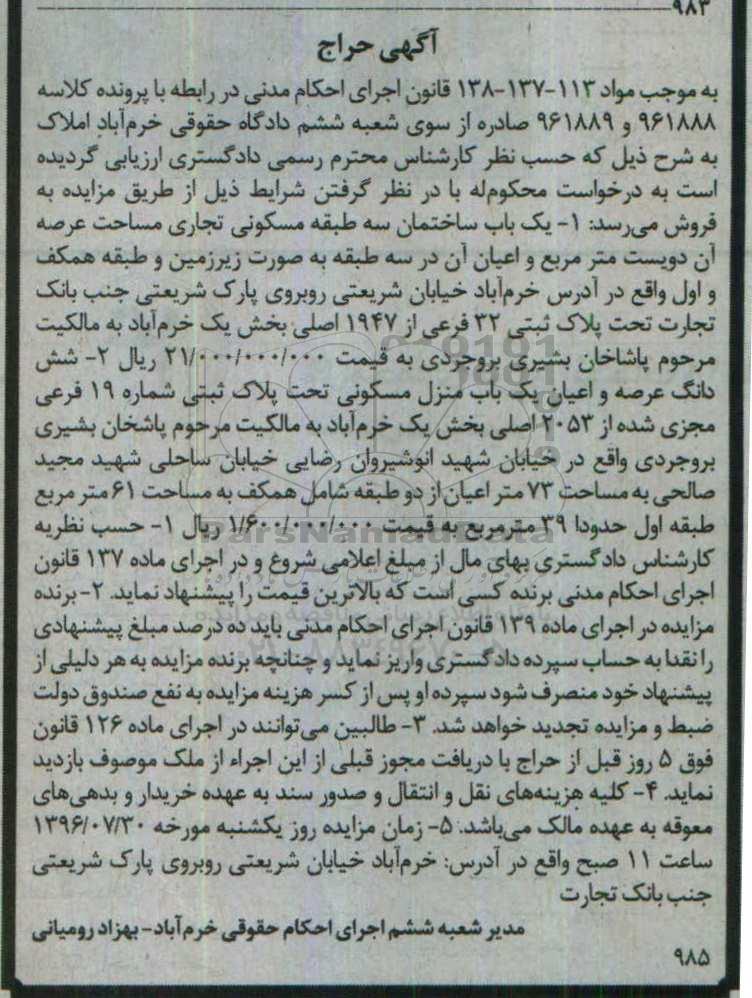 ۹۸۳
آگهی حراج
به موجب مواد ۱۱۳-۱۳۷-۱۳۸ قانون اجرای احکام مدنی در رابطه با پرونده کلاسه
۹۶۱۸۸۸ و ۹۶۱۸۸۹ صادره از سوی شعبه ششم دادگاه حقوقی خرم‌آباد املاک
به شرح ذیل که حسب نظر کارشناس محترم رسمی دادگستری ارزیابی گردیده
است به درخواست محکوم‌له با در نظر گرفتن شرایط ذیل از طریق مزایده به
فروش می‌رسد: ۱- یک باب ساختمان سه طبقه مسکونی تجاری مساحت عرصه
آن دویست متر مربع و اعیان آن در سه طبقه به صورت زیرزمین و طبقه همکف
و اول واقع در آدرس خرم‌آباد خیابان شریعتی روبروی پارک شریعتی جنب بانک
تجارت تحت پلاک ثبتی ۳۲ فرعی از ۱۹۴۷ اصلی بخش یک خرم‌آباد به مالکیت
مرحوم پاشاخان بشیری بروجردی به قیمت ۲۱/۰۰۰/۰۰۰/۰۰۰ ریال ۲- شش
دانگ عرصه و اعیان یک باب منزل مسکونی تحت پلاک ثبتی شماره ۱۹ فرعی
مجزی شده از ۲۰۵۳ اصلی بخش یک خرم‌آباد به مالکیت مرحوم پاشخان بشیری
بروجردی واقع در خیابان شهید انوشیروان رضایی خیابان ساحلی شهید مجید
صالحی به مساحت ۷۳ متر اعیان از دو طبقه شامل همکف به مساحت ۶۱ متر مربع
طبقه اول حدودا ۳۹ مترمربع به قیمت ۱/۶۰۰/۰۰۰/۰۰۰ ریال ۱- حسب نظریه
ParsNamadData
کارشناس دادگستری بهای مال از مبلغ اعلامی شروع و در اجرای ماده ۱۳۷ قانون
اجرای احکام مدنی برنده کسی است که بالاترین قیمت را پیشنهاد نماید. ۲- برنده
مزایده در اجرای ماده ۱۳۹ قانون اجرای احکام مدنی باید ده درصد مبلغ پیشنهادی
را نقدا به حساب سپرده دادگستری واریز نماید و چنانچه برنده مزایده به هر دلیلی از
پیشنهاد خود منصرف شود سپرده او پس از کسر هزینه مزایده به نفع صندوق دولت
ضبط و مزایده تجدید خواهد شد. ۳- طالبین می‌توانند در اجرای ماده ۱۲۶ قانون
فوق ۵ روز قبل از حراج با دریافت مجوز قبلی از این اجراء از ملک موصوف بازدید
نماید. ۴- کلیه هزینه‌های نقل و انتقال و صدور سند به عهده خریدار و بدهی‌های
معوقه به عهده مالک می‌باشد. ۵- زمان مزایده روز یکشنبه مورخه ۱۳۹۶/۰۷/۳۰
ساعت ۱۱ صبح واقع در آدرس: خرم‌آباد خیابان شریعتی روبروی پارک شریعتی
جنب بانک تجارت
مدیر شعبه ششم اجرای احکام حقوقی خرم‌آباد- بهزاد رومیانی
۹۸۵